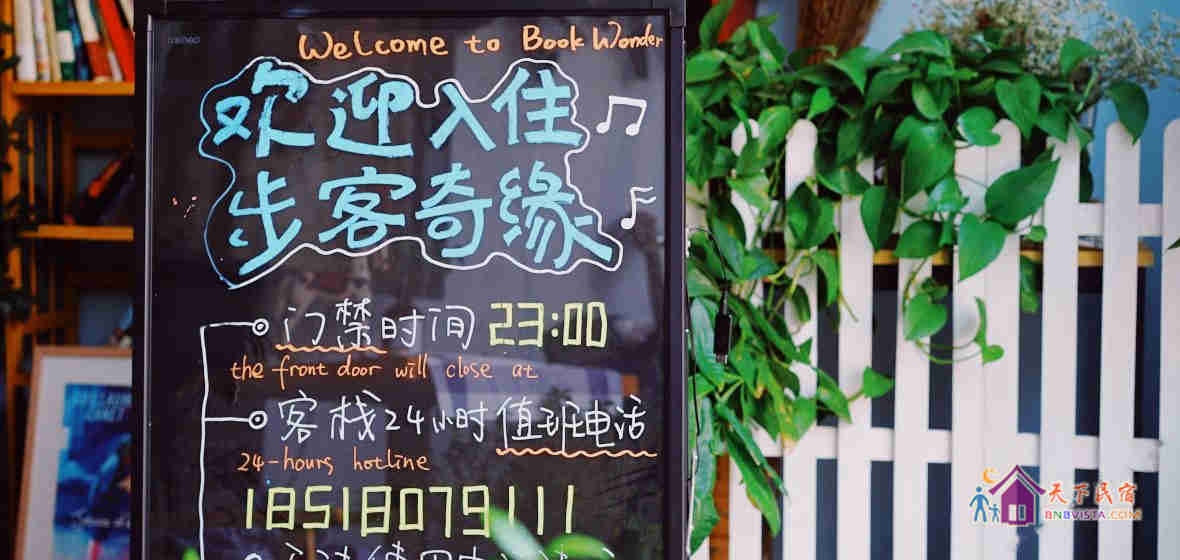 Welcome to Book Wonder
欢迎入住
步客奇缘
门禁时间 23:00
the front door will close at
客栈24小时值班电话
24-hours hotline
18518079111
天下民宿
BNBVISTA.COM